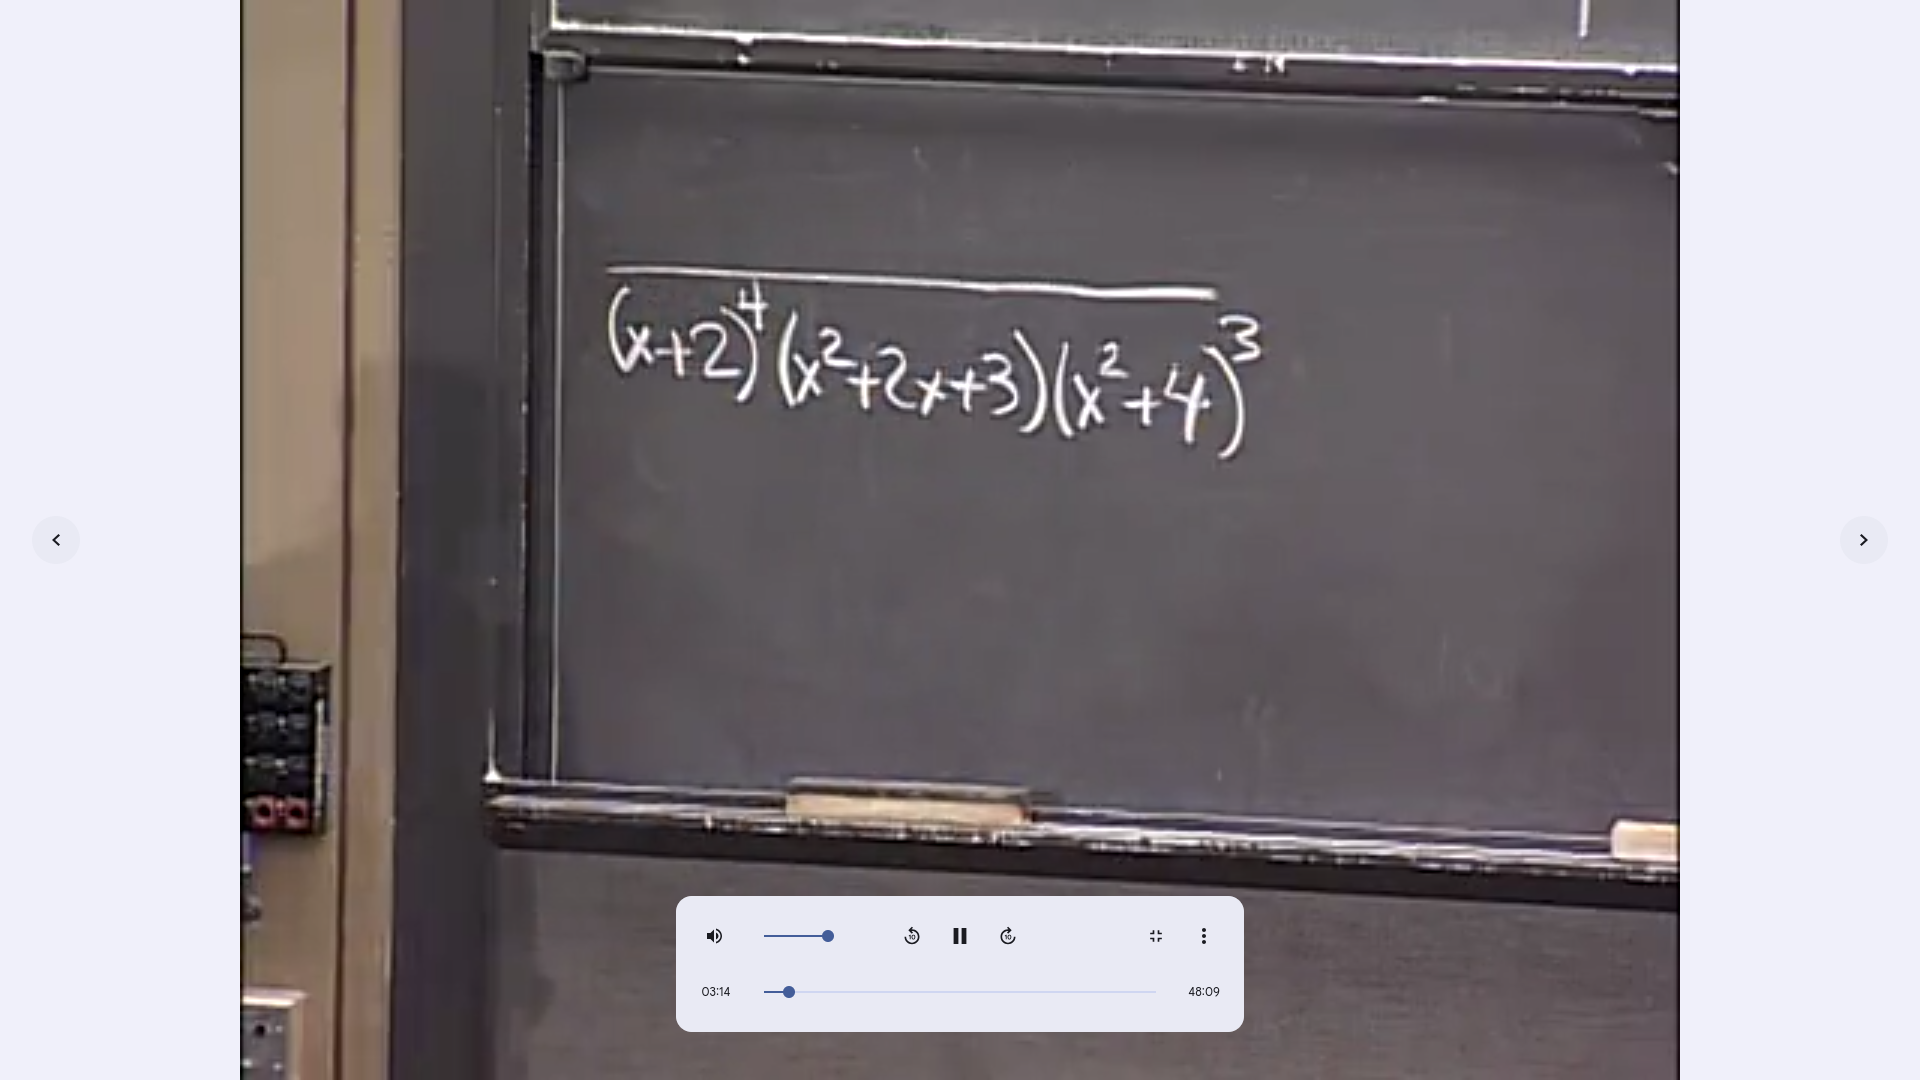 (x+2)⁴(x²+2x+3)(x²+4)³
10
10
03:14
48:09